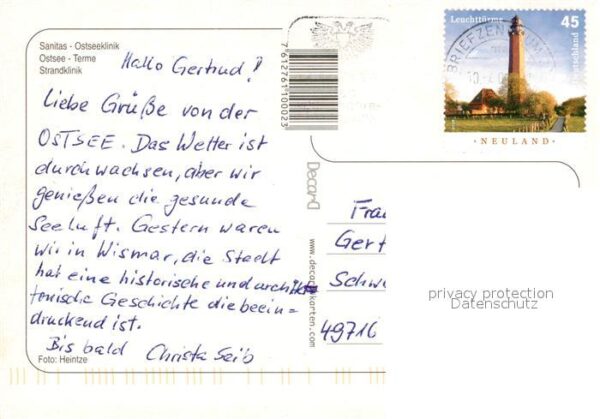 Sanitas - Ostseeklinik
Ostsee - Terme
Strandklinik
Hallo Gertrud!
Liebe Grüße von der
OSTSEE. Das Wetter ist
durchwachsen, aber wir
genießen die gesunde
Seeluft. Gestern waren
wir in Wismar, die Stadt
hat eine historische und archi
tonische Geschichte die beein-
druckend ist.
Bis bald Christa Seib
Foto: Heintze
7612761100023
Decard
Leuchttürme 45
Deutschland
NEULAND
BRIEFZENTRUM
Frau
Gert
Schw
49716
privacy protection
Datenschutz